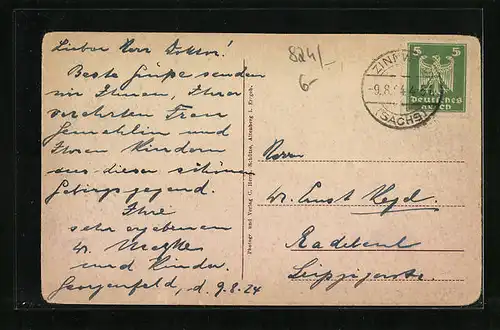 Lieber Herr Doktor!
Beste Grüße senden
wir Ihnen, Ihrer
verehrten Frau
Gemahlin und
Ihren Kindern
aus dieser schönen
Gebirgsgegend.
Ihre
sehr ergebenen
W.
und Kinder.
Georgenfeld, d. 9.8.24
824/-
6-
Photogr. und Verlag C. Schütze, Altenberg i. Erzgeb.
ZINNW
-9.8.24.
(SACHS.)
5 5
Deutsches
Reich
Herrn
Dr. Ernst
Radebeul
Leipzigerstr.